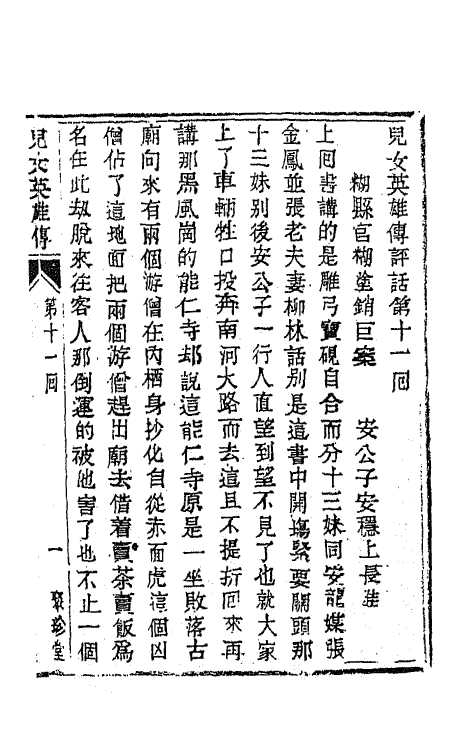 兒女英雄傳評話第十一回
糊縣官糊塗銷巨案 安公子安穩上長途
上回書講的是雕弓寶硯自合而分十三妹同安龍媒張
金鳳並張老夫妻柳林話別是這書中開場緊要關頭那
十三妹別後安公子一行人直望到望不見了也就大家
上了車輛牲口投奔南河大路而去這且不提折回來再
講那黑風崗的能仁寺却說這能仁寺原是一坐敗落古
廟向來有兩個游僧在內栖身抄化自從赤面虎這個凶
僧佔了這地面把兩個游僧趕出廟去借着賣茶賣飯爲
名在此刼脫來往客人那倒運的被他害了也不止一個
兒女英雄傳 第十一回 一 聚珍堂